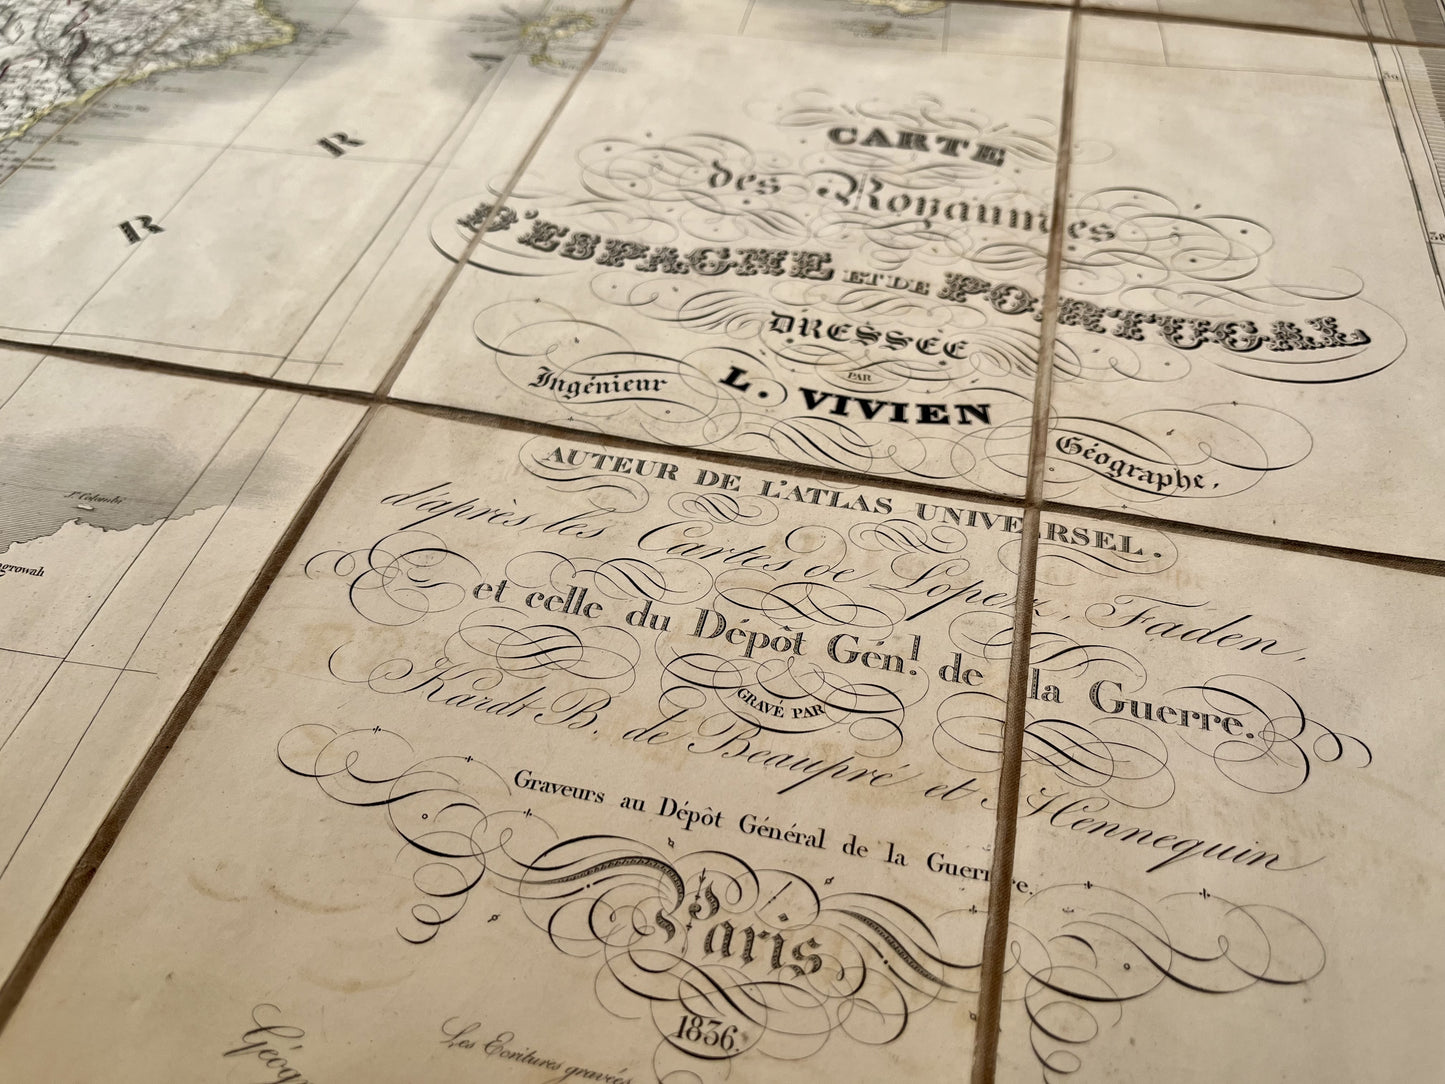 R
R
CARTE
des Royaumes
D'ESPAGNE ET DE PORTUGAL
DRESSÉE
PAR
L. VIVIEN
Ingénieur
Géographe.
AUTEUR DE L'ATLAS UNIVERSEL.
d'après les Cartes de Lopez, Faden,
et celle du Dépôt Génl. de la Guerre.
GRAVÉ PAR
Kardt B. de Beaupré et Hennequin
Graveurs au Dépôt Général de la Guerre.
Paris
1836.
Les Ecritures gravées
Géog